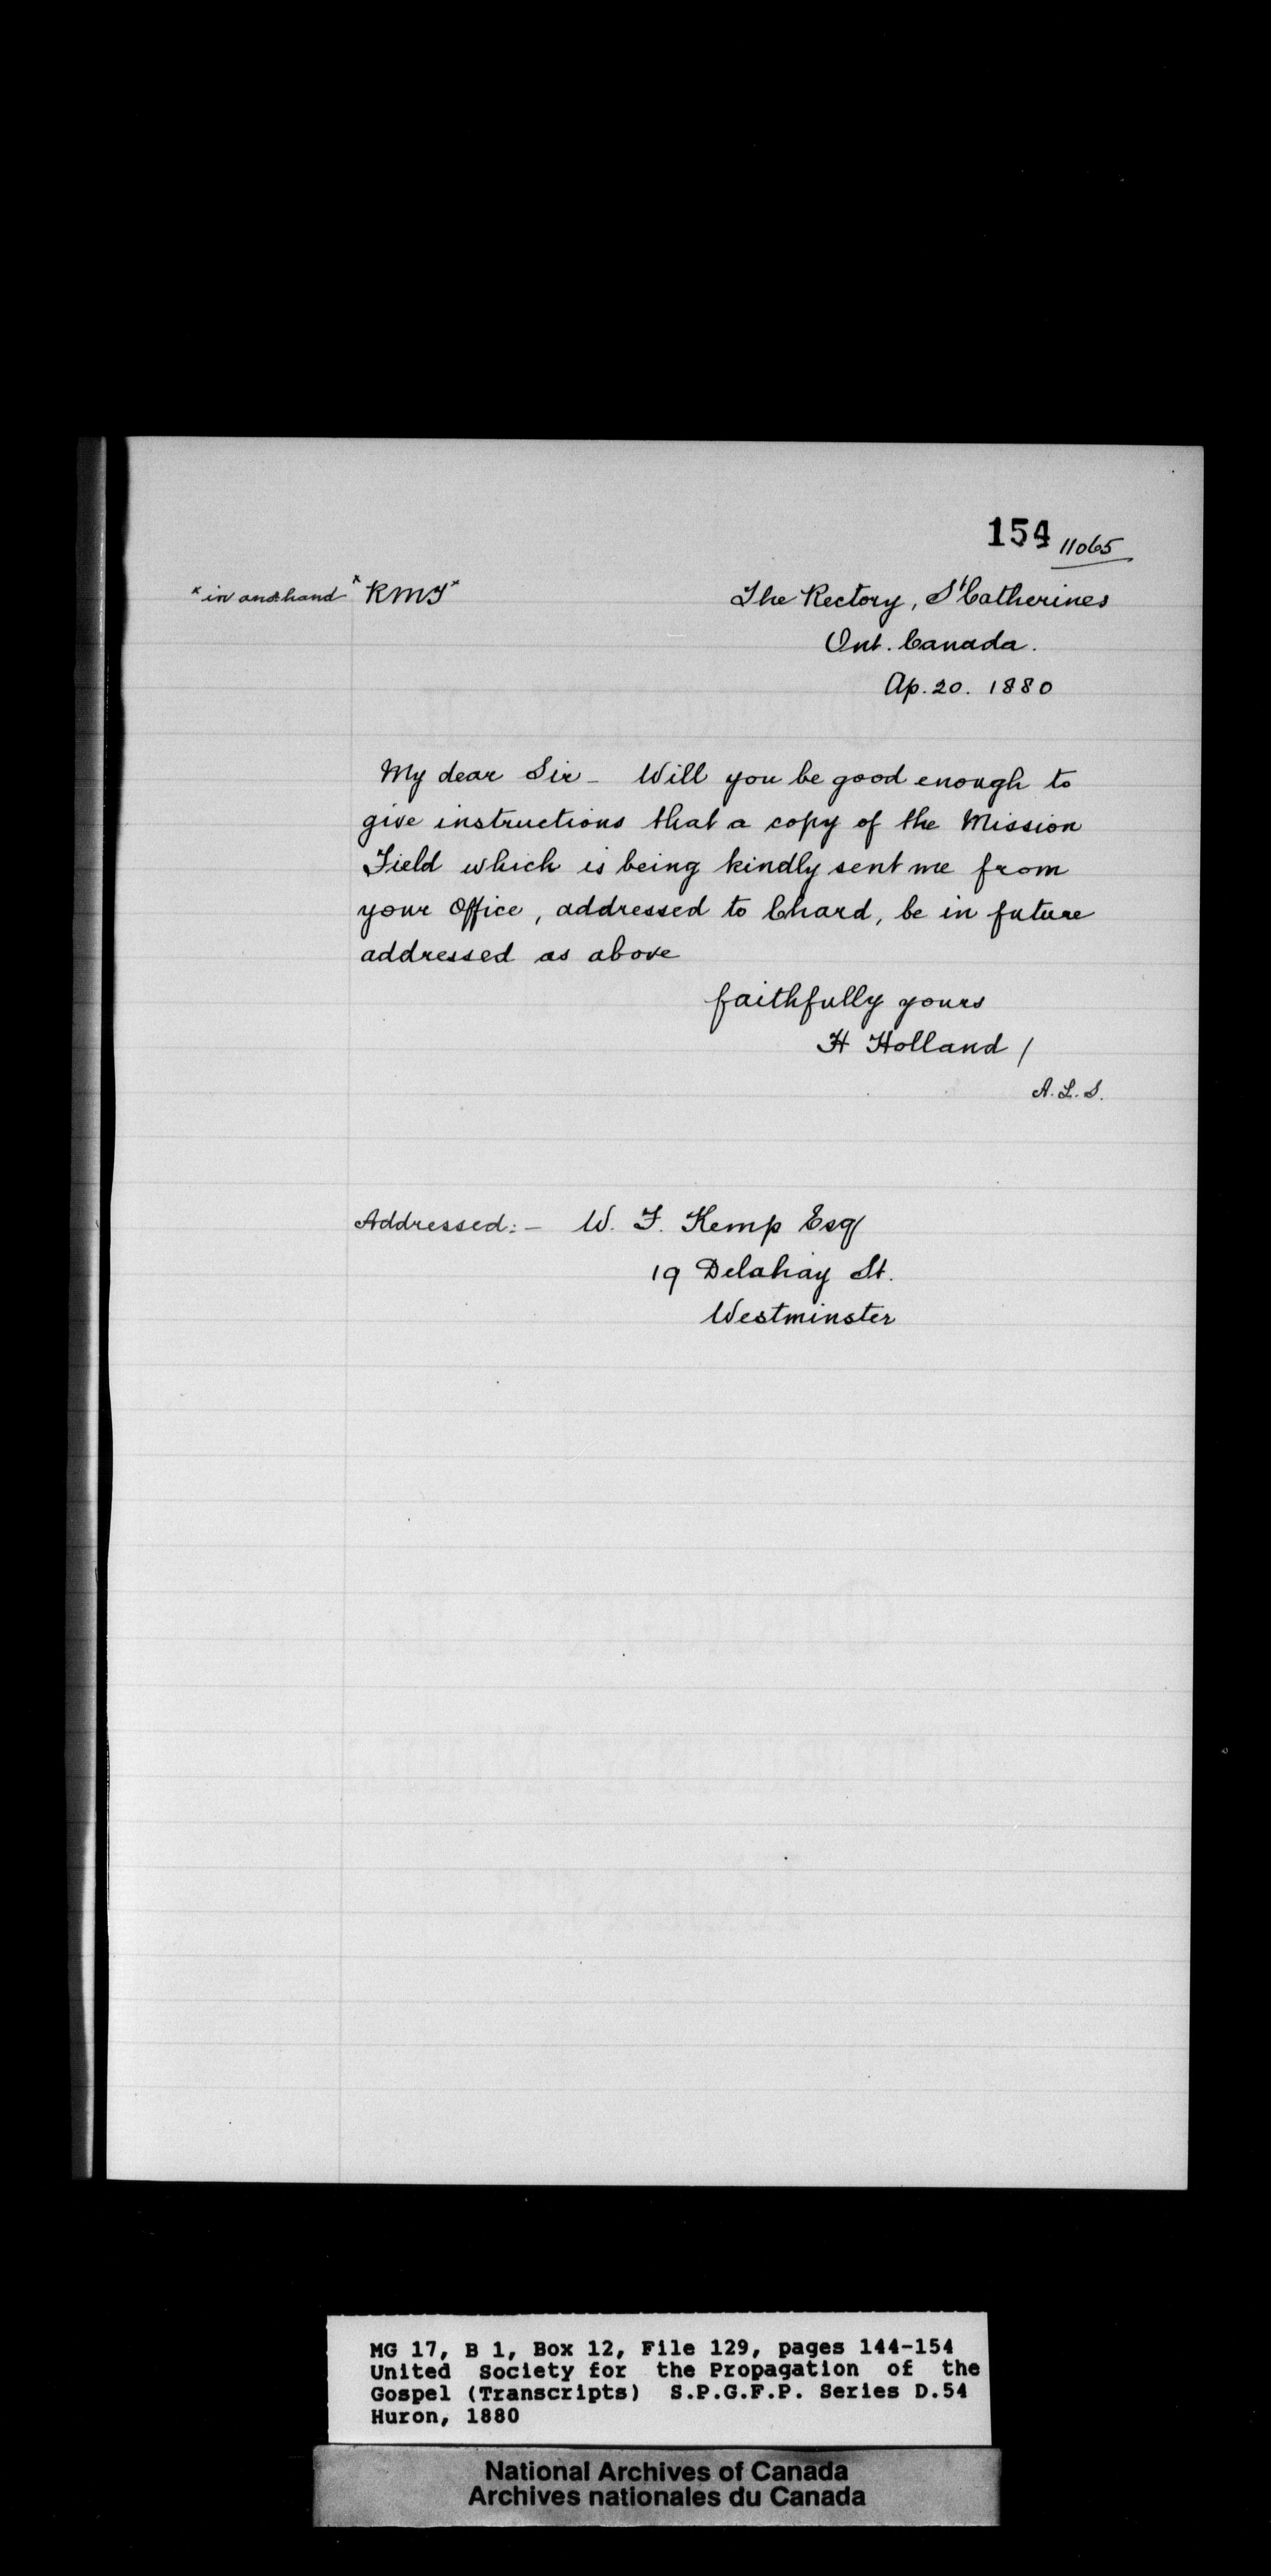 154 11065
x in anorhand x RMF x
The Rectory, St Catherines
Ont. Canada.
Ap. 20. 1880
My dear Sir - Will you be good enough to
give instructions that a copy of the Mission
Field which is being kindly sent me from
your Office, addressed to Chard, be in future
addressed as above
faithfully yours
H Holland /
A. L. S.
Addressed: - W. F. Kemp Esq
19 Delahay St.
Westminster
MG 17, B 1, Box 12, File 129, pages 144-154
United Society for the Propagation of the
Gospel (Transcripts) S.P.G.F.P. Series D.54
Huron, 1880
National Archives of Canada
Archives nationales du Canada